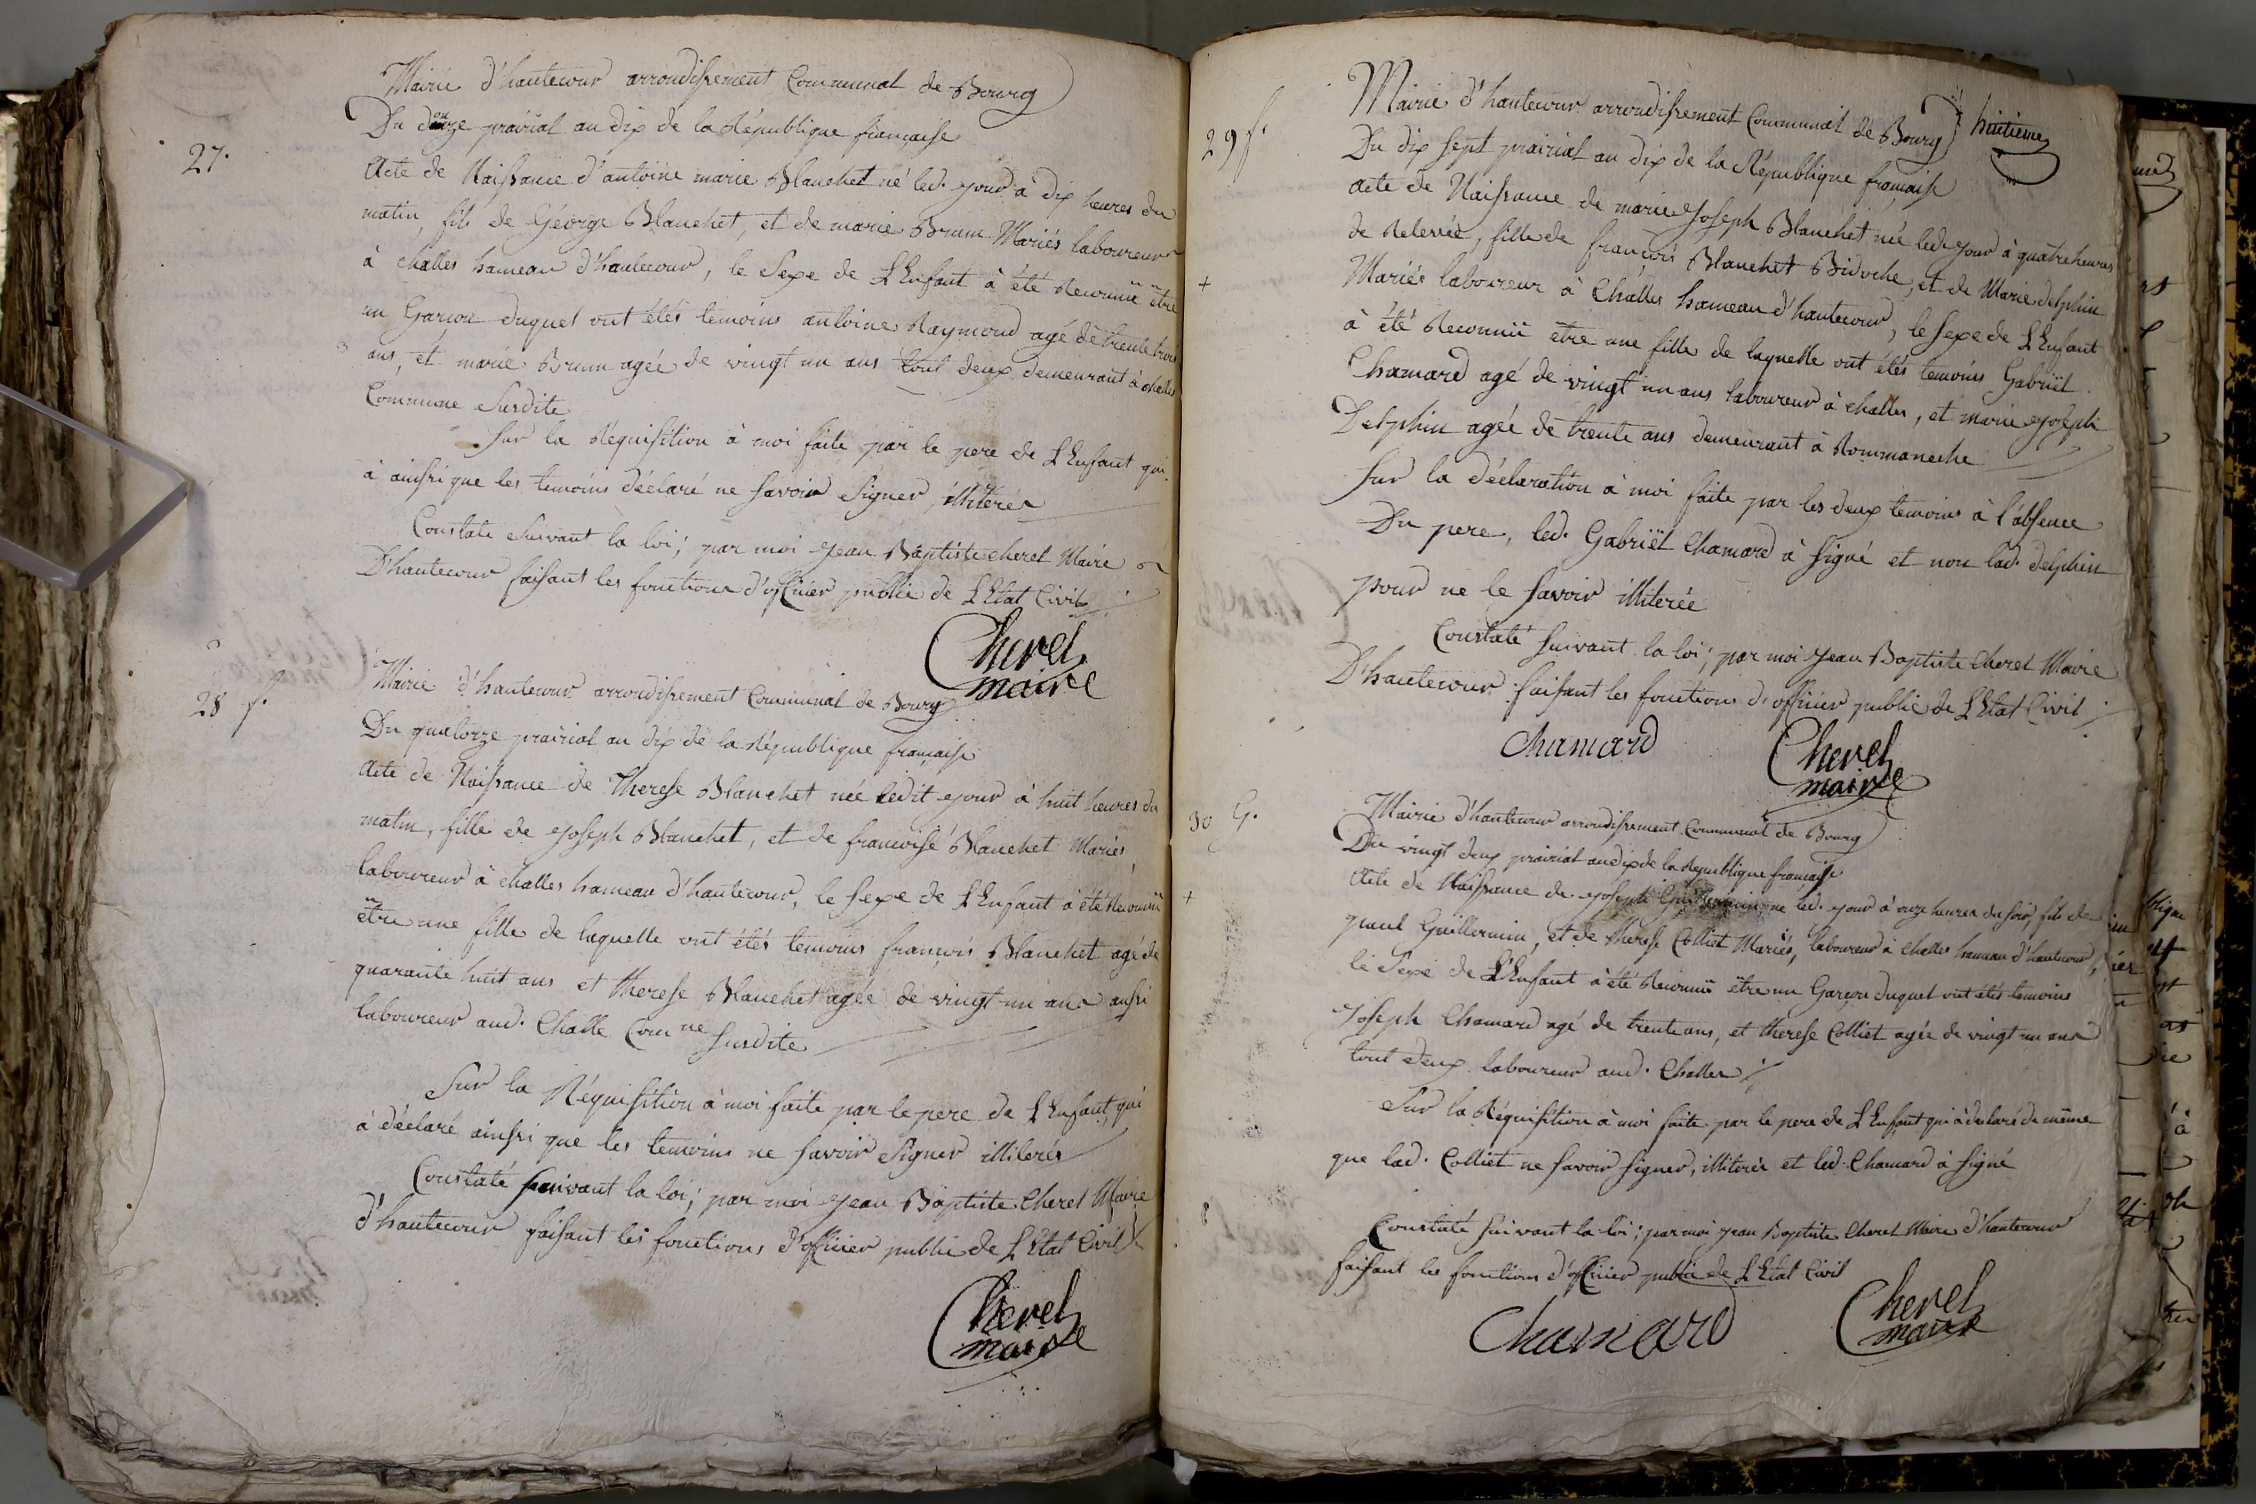 Mairie d'hautecour arrondissement Communal de Bourg
Du douze prairial an dix de la République française
27.
Acte de Naissance d'antoine marie Blanchet né led. jour à dix heures du
matin, fils de George Blanchet, et de marie Brunn Mariés laboureur
à challes hameau d'hautecour, le Sexe de L'Enfant à été Reconnuë être
un Garçon duquel ont étés temoins antoine Raymond agé de trente trois
ans, et marie Brunn agée de vingt un ans tout deux demeurant à challes
Commune Susdite
Sur la Réquisition à moi faite par le pere de L'Enfant qui
à ainsi que les temoins déclaré ne savoir Signer, illiterés
Constaté Suivant la loi; par moi jean Baptiste cheret Maire
D'hautecour faisant les fonctions d'officier public de L'Etat Civil
Cheret
maire
28 f.
Mairie d'hautecour arrondissement Communal de Bourg
Du quatorze prairial an dix de la République française
Acte de Naissance de Therese Blanchet née ledit jour à huit heures du
matin, fille de joseph Blanchet, et de francoise Blanchet Mariés,
laboureur à challes hameau d'hautecour, le sexe de L'Enfant à été Reconnuë
être une fille de laquelle ont étés temoins françois Blanchet agé de
quarante huit ans et therese Blanchet agée de vingt un ans aussi
laboureur aud. Challe Com ne susdite
Sur la Réquisition à moi faite par le pere de L'Enfant, qui
à déclaré ainsi que les temoins ne savoir Signer illiterés
Constaté suivant la loi; par moi jean Baptiste Cheret Maire
d'hautecour faisant les fonctions d'officier public de L'Etat Civil
Cheret
maire
huitieme
Mairie d'hautecour arrondissement Communal de Bourg
29 f.
Du dix sept prairial an dix de la République française
Acte de Naissance de marie joseph Blanchet née led. jour à quatre heures
de Relevée, fille de françois Blanchet Bidoche, et de Marie delphin
+
Mariés laboureur à Challes hameau d'hautecour, le sexe de L'Enfant
à été Reconnuë être une fille de laquelle ont étés temoins Gabriël
Chamard agé de vingt un ans laboureur à challes, et marie joseph
Delphin agée de trente ans demeurant à Rommaneche
Sur la déclaration à moi faite par les deux temoins à l'absence
Du pere, led. Gabriël Chamard à signé et non lad. delphin
pour ne le savoir illiterée
Constaté suivant la loi; par moi jean Baptiste Cheret Maire
D'hautecour faisant les fonctions d'officier public de L'Etat Civil
Chamard
Cheret
maire
30 G.
Mairie d'hautecour arrondissement Communal de Bourg
Du vingt deux prairial an dix de la République française
+
Acte de Naissance de joseph Guillermin né led. jour à onze heures du soir, fils de
paul Guillermin, et de therese Colliet Mariés, laboureur à challes hameau d'hautecour,
le Sexe de L'Enfant à été Reconnuë être un Garçon duquel ont étés temoins
joseph Chamard agé de trente ans, et therese Colliet agée de vingt un ans
tout deux laboureur aud. Challes
Sur la Réquisition à moi faite par le pere de L'Enfant qui à declaré de même
que lad. Colliet ne savoir signer, illiterés et led. Chamard à signé
Constaté suivant la loi; par moi jean Baptiste Cheret Maire d'hautecour
faisant les fonctions d'officier public de L'Etat Civil
Chamard
Cheret
maire